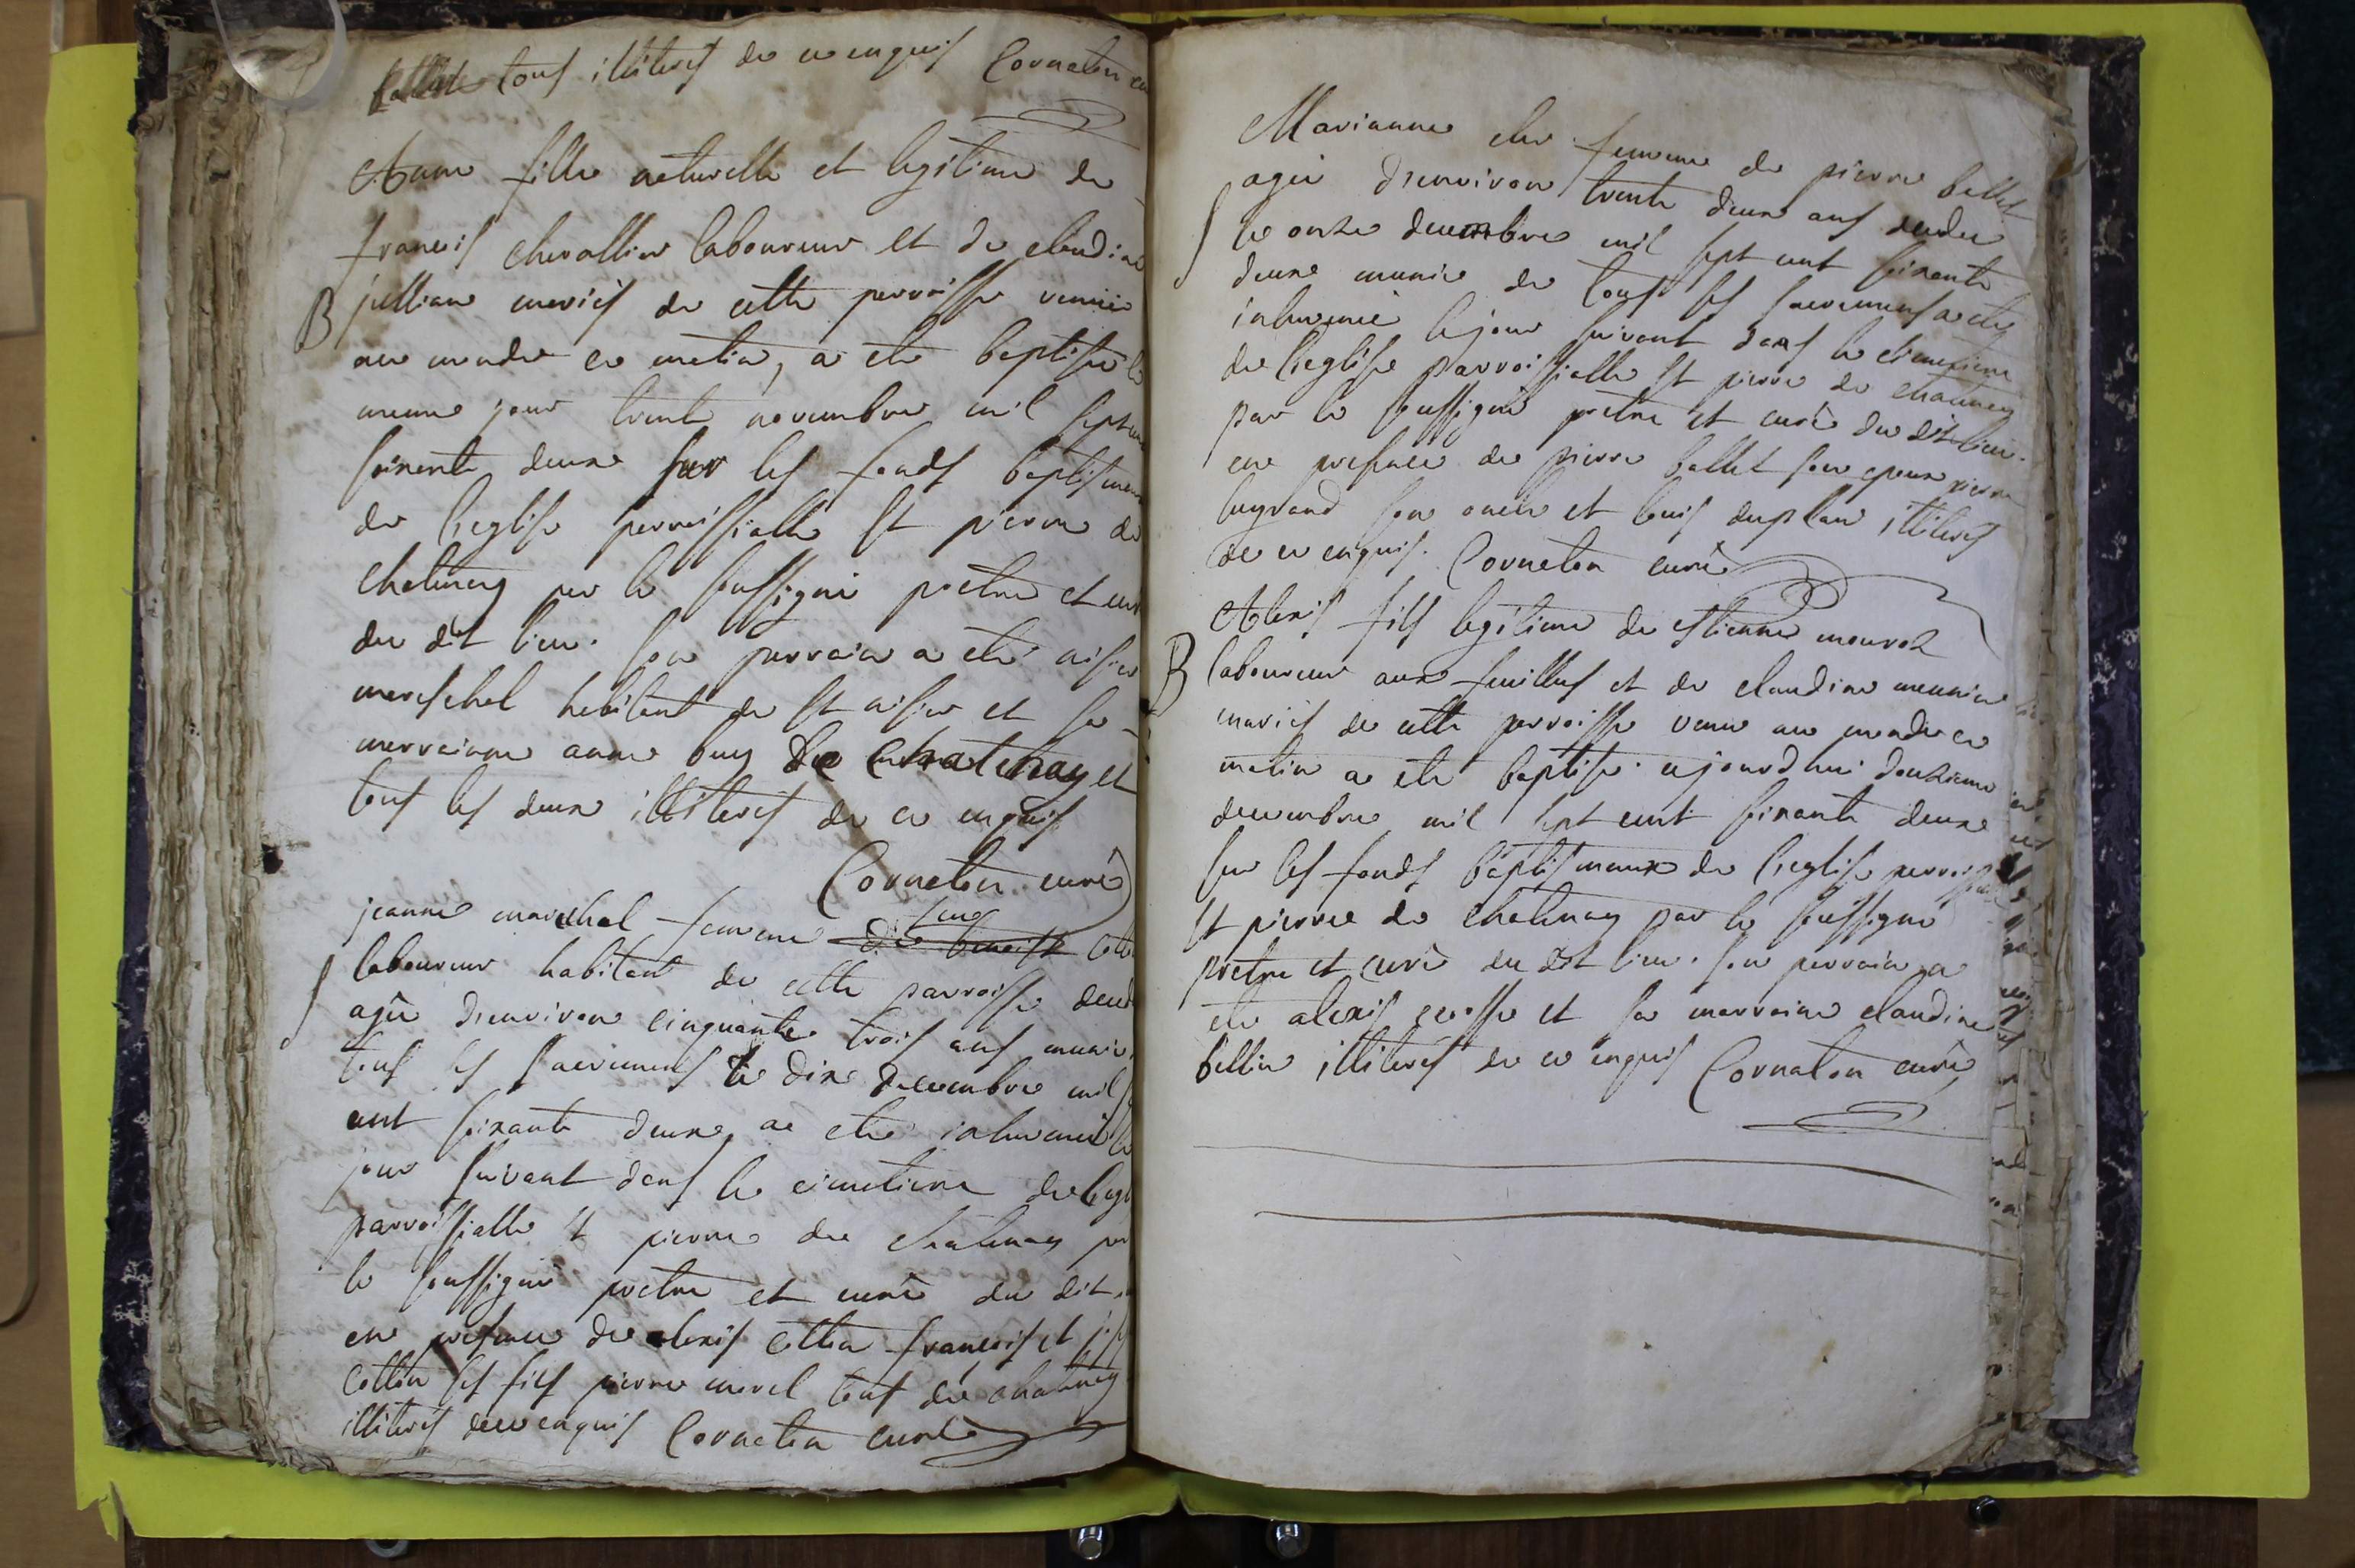 tous illiterés de ce enquis Cornaton
Anne fille naturelle et legitime de
francois chevallier laboureur et de claudine
B jullian mariés de cette parroisse venue
au monde ce matin, a eté baptisée le
meme jour trente novembre mil sept cent
soixante deux sur les fonds baptismaux
de l'eglise parroissialle st pierre de
chatenay par le soussigné pretre et curé
du dit lieu. son parrain a eté
mareschal habitant de st nisier et sa
marrainne anne buy de Chatenay et
tous les deux illiterés de ce enquis
Cornaton curé
jeanne marechal femme
S laboureur habitant de cette parroisse
agée d'environ cinquante trois ans munie
tous les sacremens le dix decembre mil
cent soixante deux, a eté inhumée le
jour suivant dans le cimetiere de l'egl
parroissialle st pierre de chatenay par
le soussigné pretre et curé du dit
en presence de alexis cottin francois et
cottin ses fils pierre morel tous de chatenay
illiterés de ce enquis Cornaton curé
Marianne femme de pierre ballet
agée d'environ trente deux ans
S le onze decembre mil sept cent soixante
deux munie de tous les sacremens a eté
inhumée le jour suivant dans le cimetiere
de l'eglise parroissialle st pierre de chatenay
par le soussigné pretre et curé du dit lieu.
en presence de pierre ballet son epoux pierre
son oncle et louis duplan illiterés
de ce enquis. Cornaton curé
Alexis fils legitime de estienne
B laboureur aux feuilles et de claudine meunier
mariés de cette parroisse venu au monde ce
matin a eté baptisé ajourdhui douzieme
decembre mil sept cent soixante deux
sur les fonds baptismaux de l'eglise parroissialle
st pierre de chatenay par le soussigné
pretre et curé du dit lieu. son parrain a
eté alexis et sa marraine claudine
illiterés de ce enquis Cornaton curé